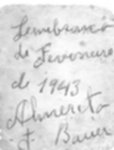 Lembrança
de Fevereiro
de 1943
F. Bauer